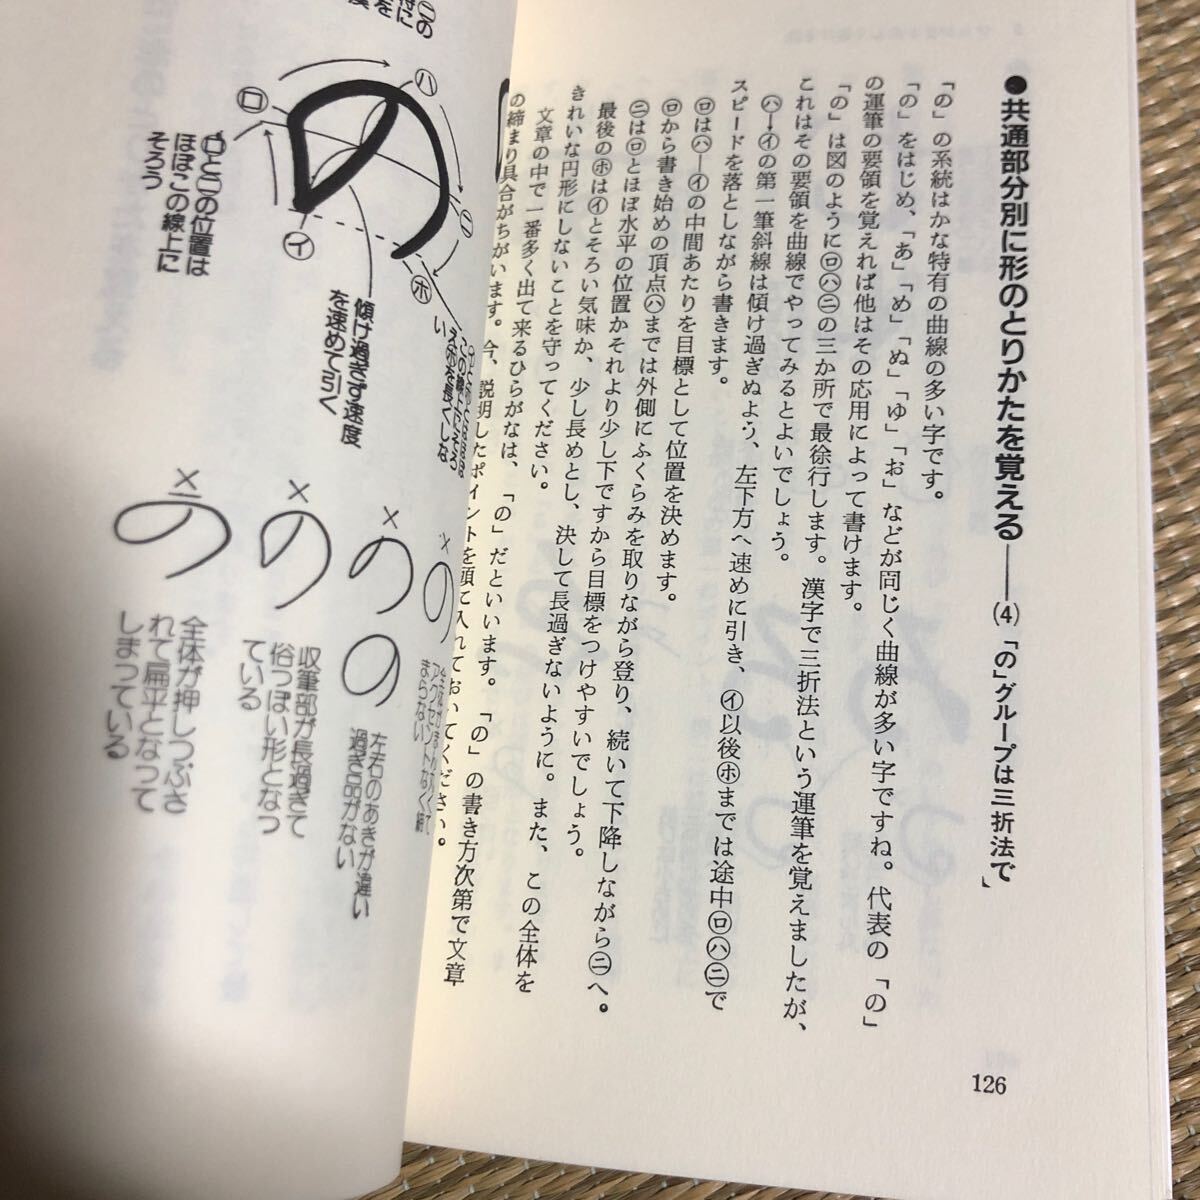 ●共通部分別に形のとりかたを覚える――(4)「の」グループは三折法で、
「の」の系統はかな特有の曲線の多い字です。
「の」をはじめ、「あ」「め」「ぬ」「ゆ」「お」などが同じく曲線が多い字ですね。代表の「の」
の運筆の要領を覚えれば他はその応用によって書けます。
「の」は図のように㋺㋩㊁の三か所で最徐行します。漢字で三折法という運筆を覚えましたが、
これはその要領を曲線でやってみるとよいでしょう。
㋩→㋑の第一筆斜線は傾け過ぎぬよう、左下方へ速めに引き、㋑以後㋭までは途中㋺㋩㊁で
スピードを落としながら書きます。
㋺は㋩―㋑の中間あたりを目標として位置を決めます。
㋺から書き始めの頂点㋩までは外側にふくらみを取りながら登り、続いて下降しながら㊁へ。
㊁は㋺とほぼ水平の位置かそれより少し下ですから目標をつけやすいでしょう。
最後の㋭は㋑とそろい気味か、少し長めとし、決して長過ぎないように。また、この全体を
きれいな円形にしないことを守ってください。
文章の中で一番多く出て来るひらがなは、「の」だといいます。「の」の書き方次第で文章
の締まり具合がちがいます。今、説明したポイントを頭に入れておいてください。
126
㊁の
特に
を
㋩
の
㋺
㊁
㋑
㋭
㋺と㊁の位置は
ほぼこの線上に
そろう
傾け過ぎず速度
を速めて引く
を長くしな
い
×
の
まらない
×
の
の
左右のあきが違い
過ぎ品がない
×
の
収筆部が長過ぎて
俗っぽい形となっ
ている
×
の
全体が押しつぶさ
れて扁平となって
しまっている